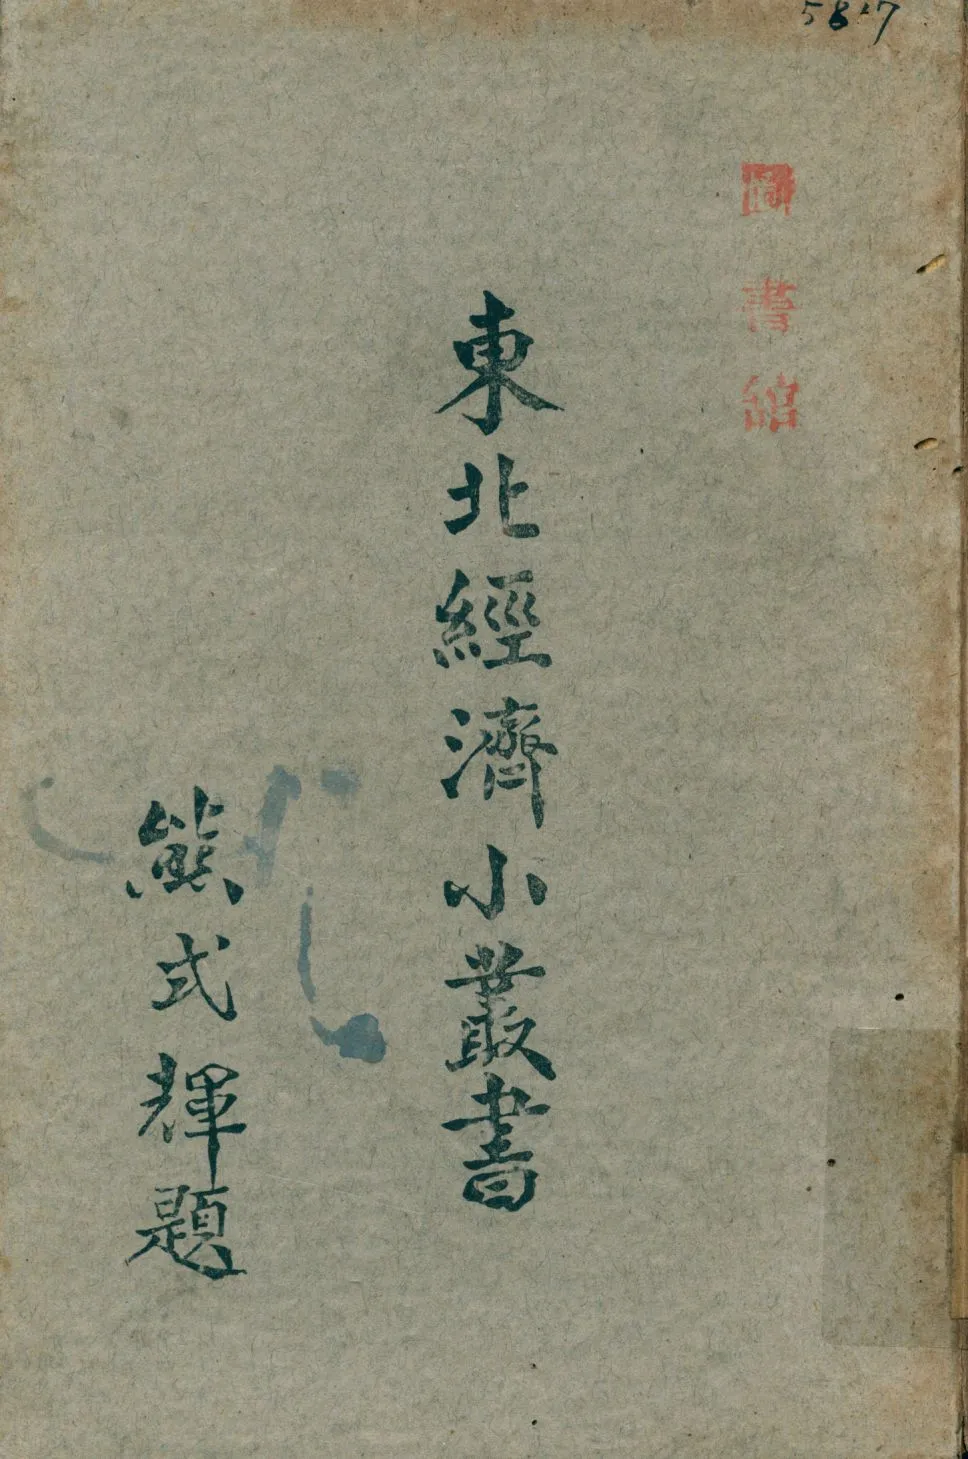 5817
圖書館
東北經濟小叢書
熊式輝題